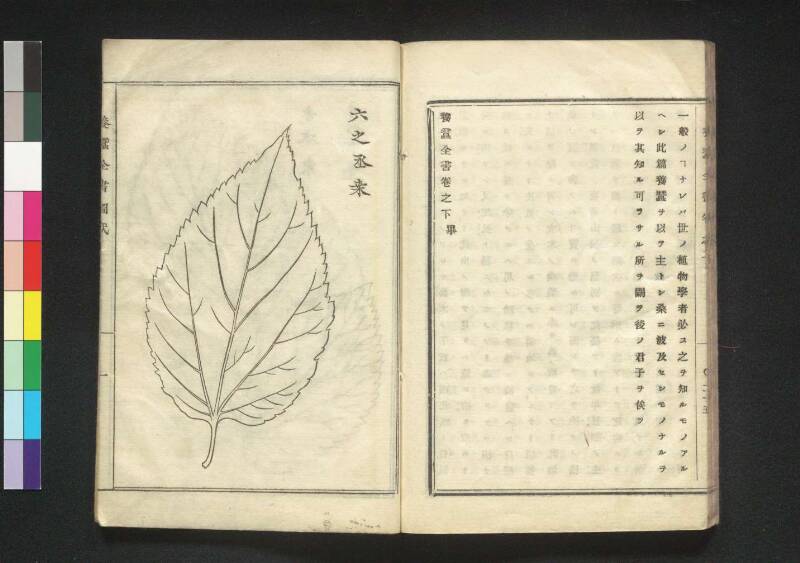 一般ノヿナレバ世ノ植物學者必ス之ヲ知ルモノアル
ヘシ此篇養蠶ヲ以テ主トシ桑ニ波及セシモノナルヲ
以テ其知ル可ラサル所ヲ闕ヲ後ノ君子ヲ俟ツ
養蠶全書卷之下畢
六之丞桒
養蠶全書圖式